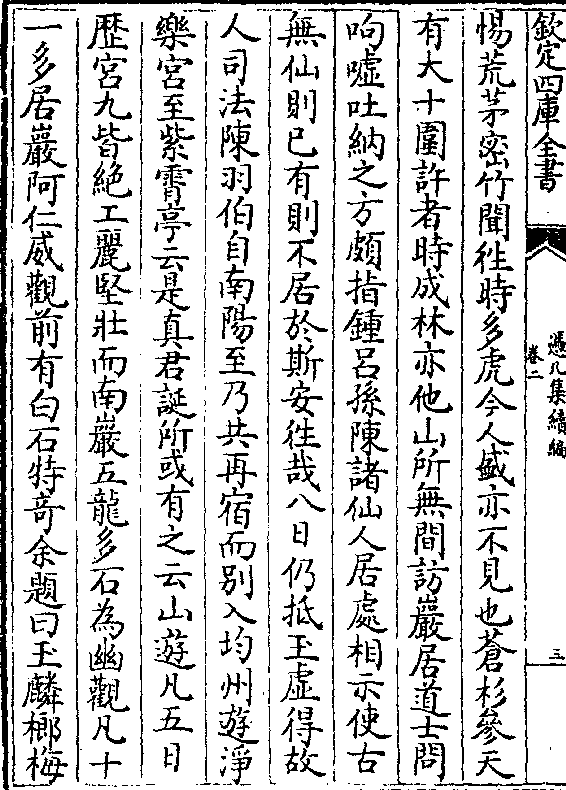 欽定四庫全書
憑几集續編
卷二
三
惕荒茅密竹聞徃時多虎今人盛亦不見也蒼杉參天
有大十圍許者時成林亦他山所無間訪巖居道士問
呴嘘吐納之方頗指鍾呂孫陳諸仙人居處相示使古
無仙則已有則不居於斯安徃哉八日仍抵玉虚得故
人司法陳羽伯自南陽至乃共再宿而别入均州遊淨
樂宮至紫霄亭云是真君誕所或有之云山遊凡五日
歴宮九皆絶工麗堅壯而南巖五龍多石為幽觀凡十
一多居巖阿仁威觀前有白石特竒余題曰玉麟榔梅